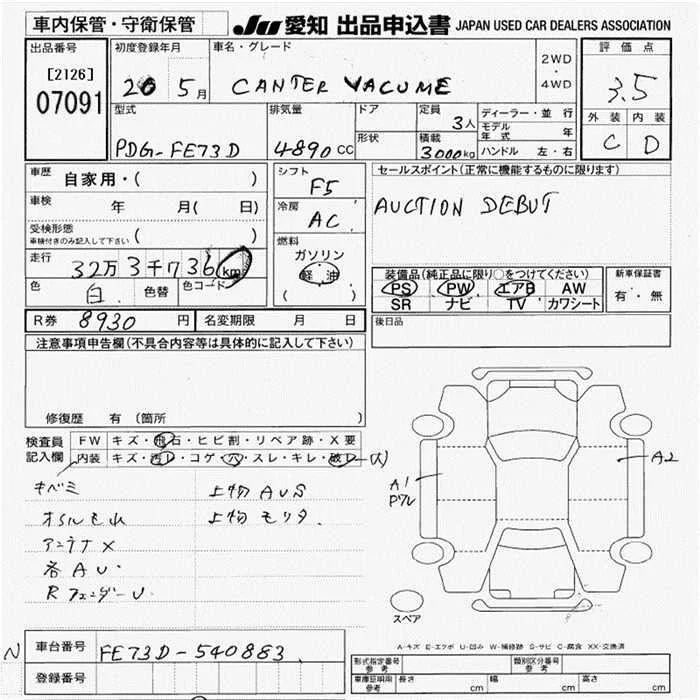 車内保管・守衛保管
JU 愛知 出品申込書 JAPAN USED CAR DEALERS ASSOCIATION
出品番号 [2126] 07091
初度登録年月 20 5月
車名・グレード CANTER VACUME
2WD ・ 4WD
評価点 3.5
外装 C 内装 D
型式 PDG-FE73D
排気量 4890 CC
ドア
形状
定員 3人
積載 3000kg
ディーラー・並行
モデル年式 年
ハンドル 左・右
車歴 自家用・( )
車検 年 月( 日)
受検形態 車検付きのみ記入して下さい ( )
走行 32万3千736km
色 白 色替 色コード
シフト F5
冷房 AC
燃料 ガソリン 軽油 ( )
セールスポイント(正常に機能するものに限ります)
AUCTION DEBUT
装備品(純正品に限り○をつけてください)
PS PW エアB AW
SR ナビ TV カワシート
新車保証書 有・無
R券 8930 円 名変期限 月 日
後日品
注意事項申告欄(不具合内容等は具体的に記入して下さい)
修復歴 有 (箇所 )
検査員記入欄
FW キズ・飛石・ヒビ割・リペア跡・X要
内装 キズ・汚レ・コゲ・穴・スレ・キレ・破レ(大)
キベミ 上物AUS
オイルもれ 上物モリタ
アンテナX
各AU
RフェンダーU
A1
A2
スペア
A-キズ E-エクボ U-凹み W-補修跡 S-サビ C-腐食 XX-交換済
N 車台番号 FE73D-540883
登録番号
形式指定番号 参考 類別区分番号 参考
車庫証明用 参考 長さ cm 幅 cm 高さ cm